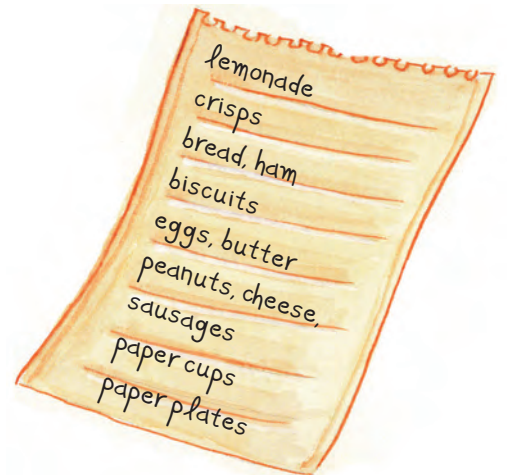 lemonade
crisps
bread, ham
biscuits
eggs, butter
peanuts, cheese,
sausages
paper cups
paper plates